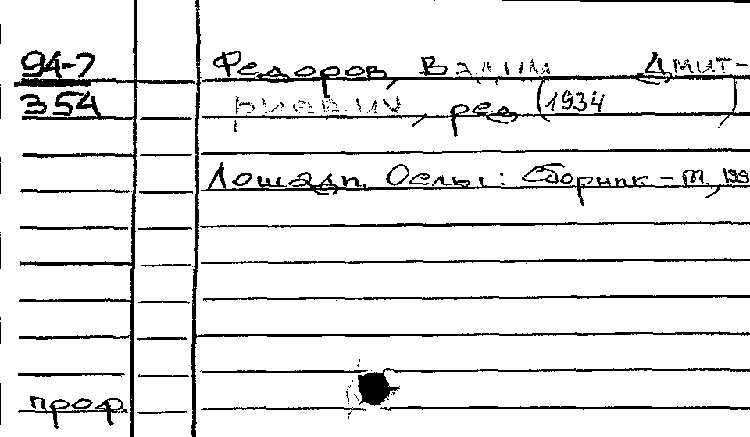 94-7
Федоров, Вадим Дмит-
354
риевич, ред (1934 )
Лошади. Ослы: Сборник - М, 199
проф